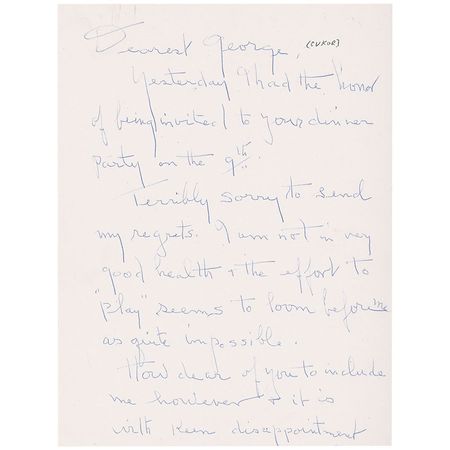 Dearest George, (CUKOR)
Yesterday I had the honor
of being invited to your dinner
party on the 9th.
Terribly sorry to send
my regrets. I am not in very
good health & the effort to
"play" seems to loom before me
as quite impossible.
How dear of you to include
me however & it is
with keen disappointment